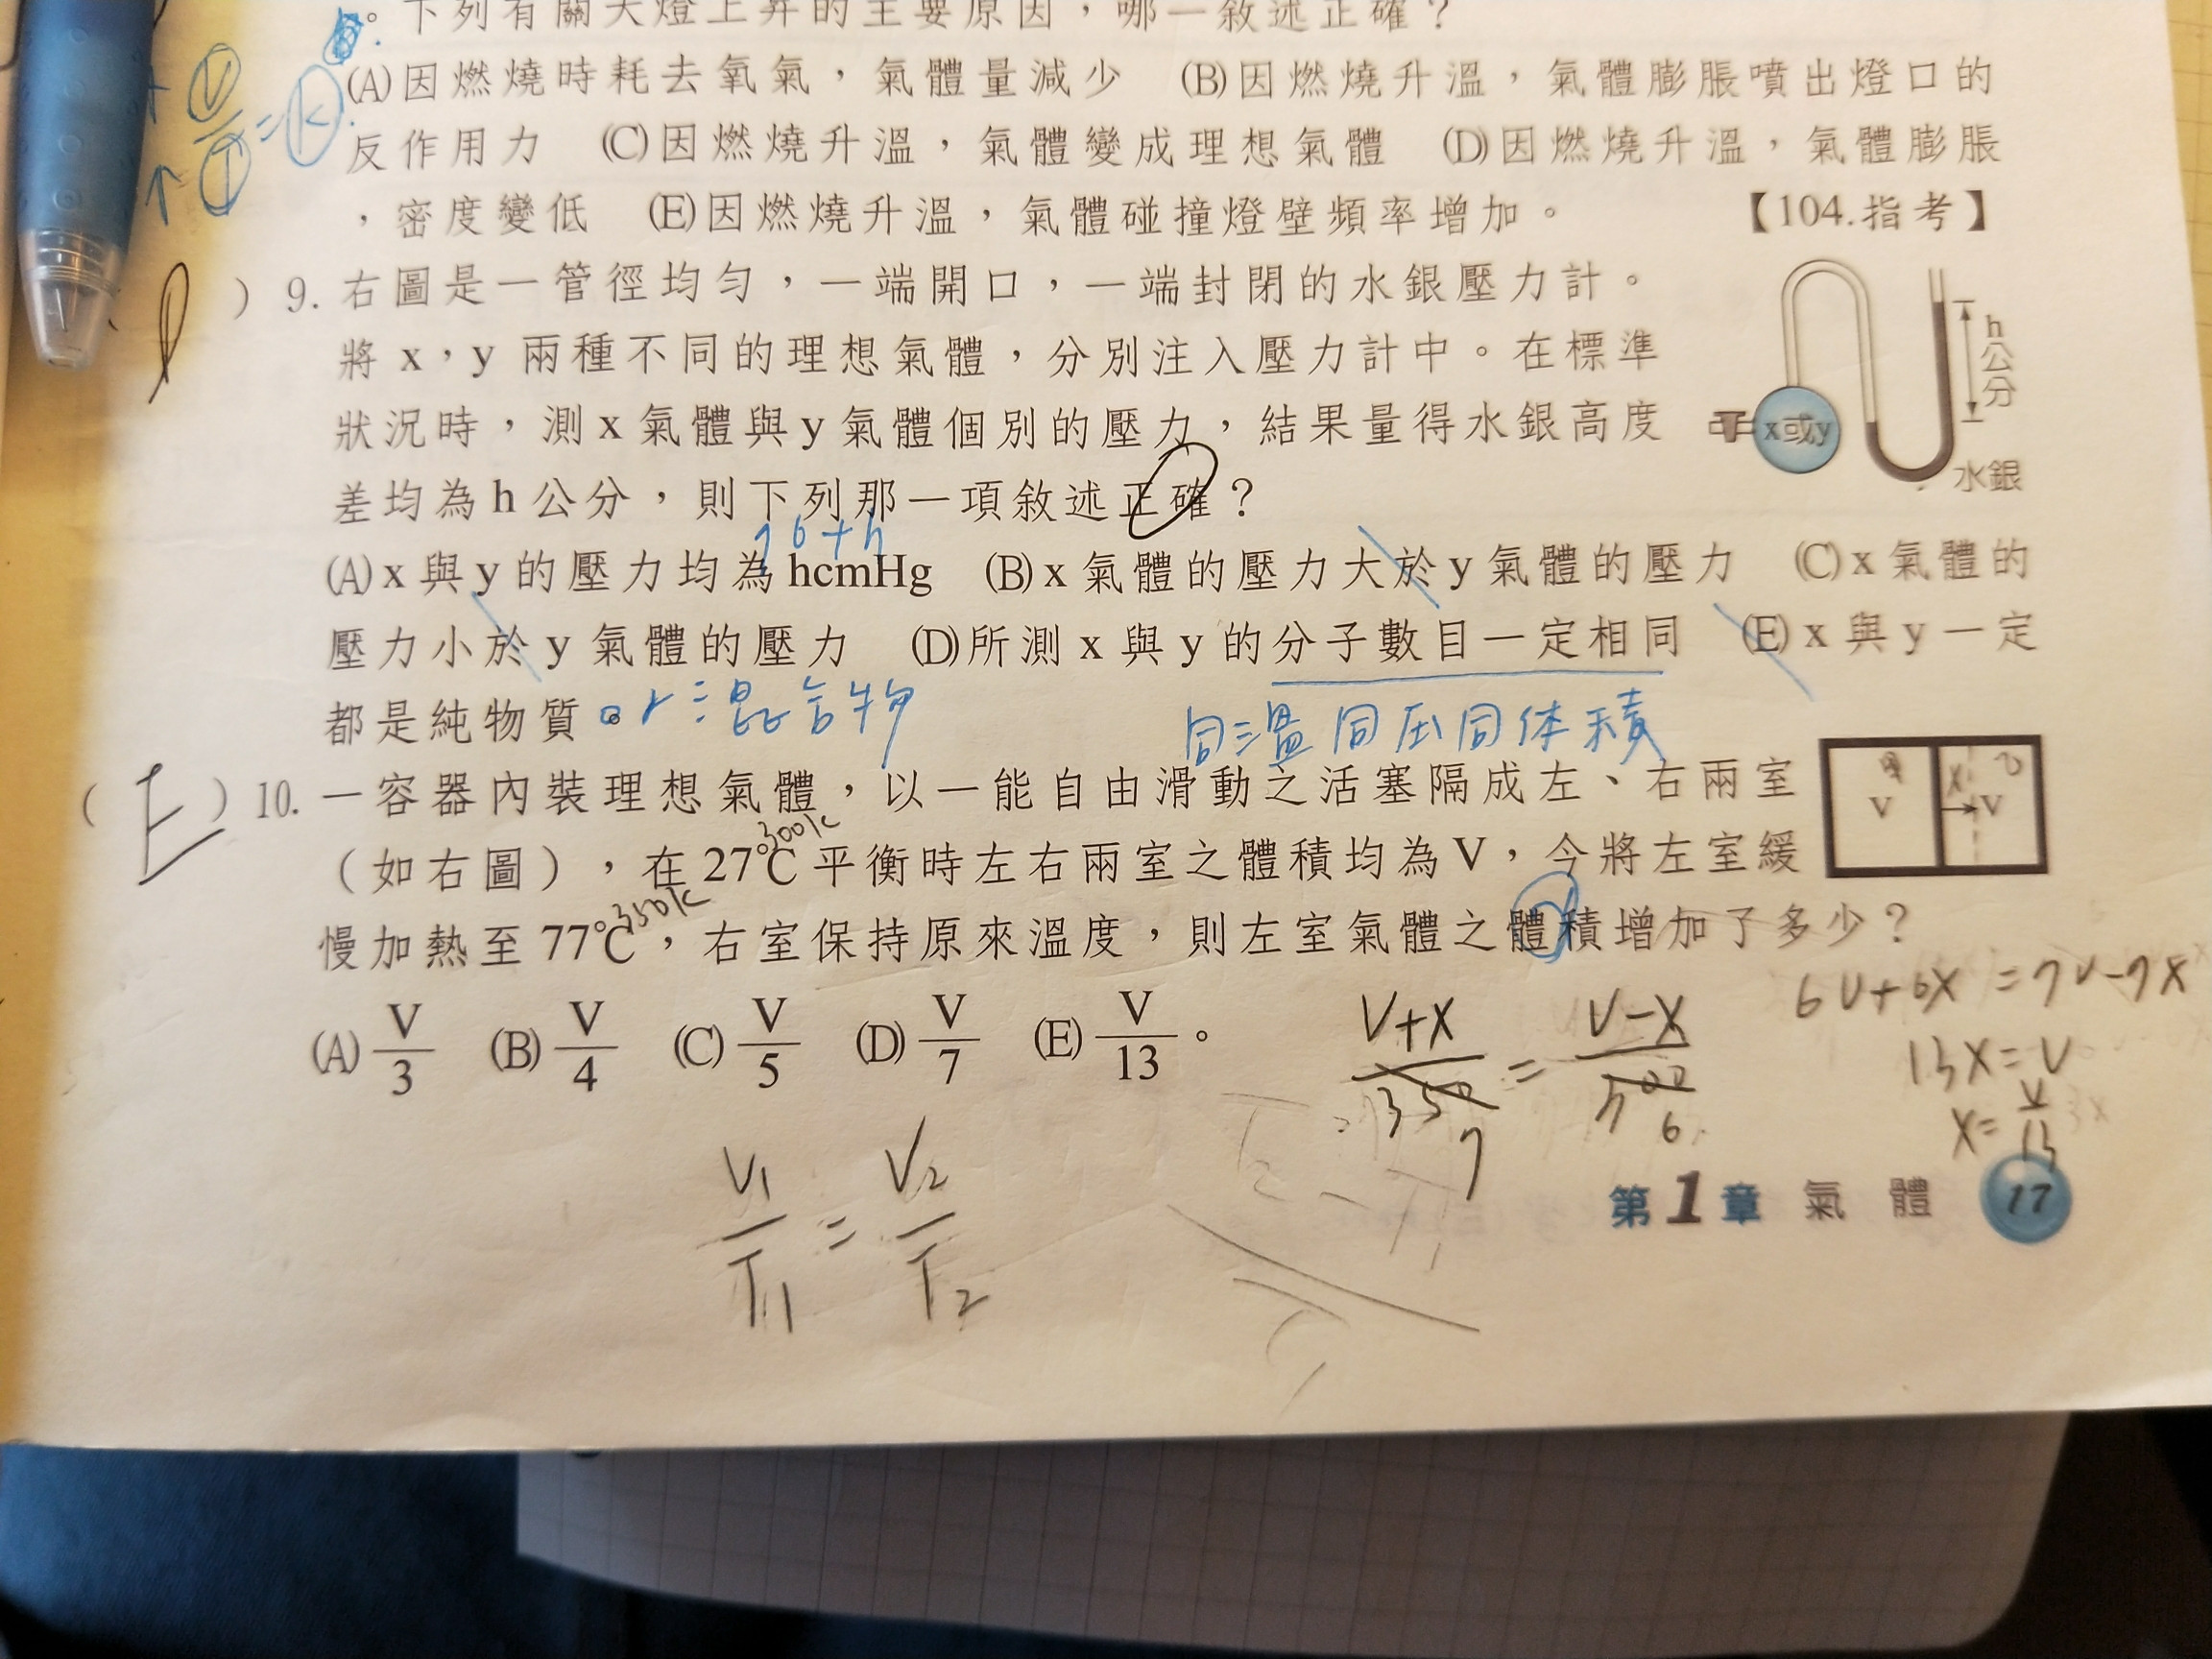 下列有關天燈上昇的主要原因，哪一敘述正確？
(A)因燃燒時耗去氧氣，氣體量減少 (B)因燃燒升溫，氣體膨脹噴出燈口的
反作用力 (C)因燃燒升溫，氣體變成理想氣體 (D)因燃燒升溫，氣體膨脹
，密度變低 (E)因燃燒升溫，氣體碰撞燈壁頻率增加。 【104.指考】
V
T
=k
) 9. 右圖是一管徑均勻，一端開口，一端封閉的水銀壓力計。
將 x，y 兩種不同的理想氣體，分別注入壓力計中。在標準
狀況時，測x氣體與y氣體個別的壓力，結果量得水銀高度
差均為h公分，則下列那一項敘述正確？
h公分
x或y
水銀
76+h
(A)x與y的壓力均為hcmHg (B)x氣體的壓力大於y氣體的壓力 (C)x氣體的
壓力小於y氣體的壓力 (D)所測x與y的分子數目一定相同 (E)x與y一定
都是純物質。or混合物
同溫同压同体積
(E) 10. 一容器內裝理想氣體，以一能自由滑動之活塞隔成左、右兩室
V X V
300k
（如右圖），在27℃平衡時左右兩室之體積均為V，今將左室緩
350k
慢加熱至77℃，右室保持原來溫度，則左室氣體之體積增加了多少？
(A) V/3 (B) V/4 (C) V/5 (D) V/7 (E) V/13。
V+X/350 = V-X/300
7 6
6V+6X=7V-7X
13X=V
X=V/13
V1/T1 = V2/T2
第1章 氣體 17